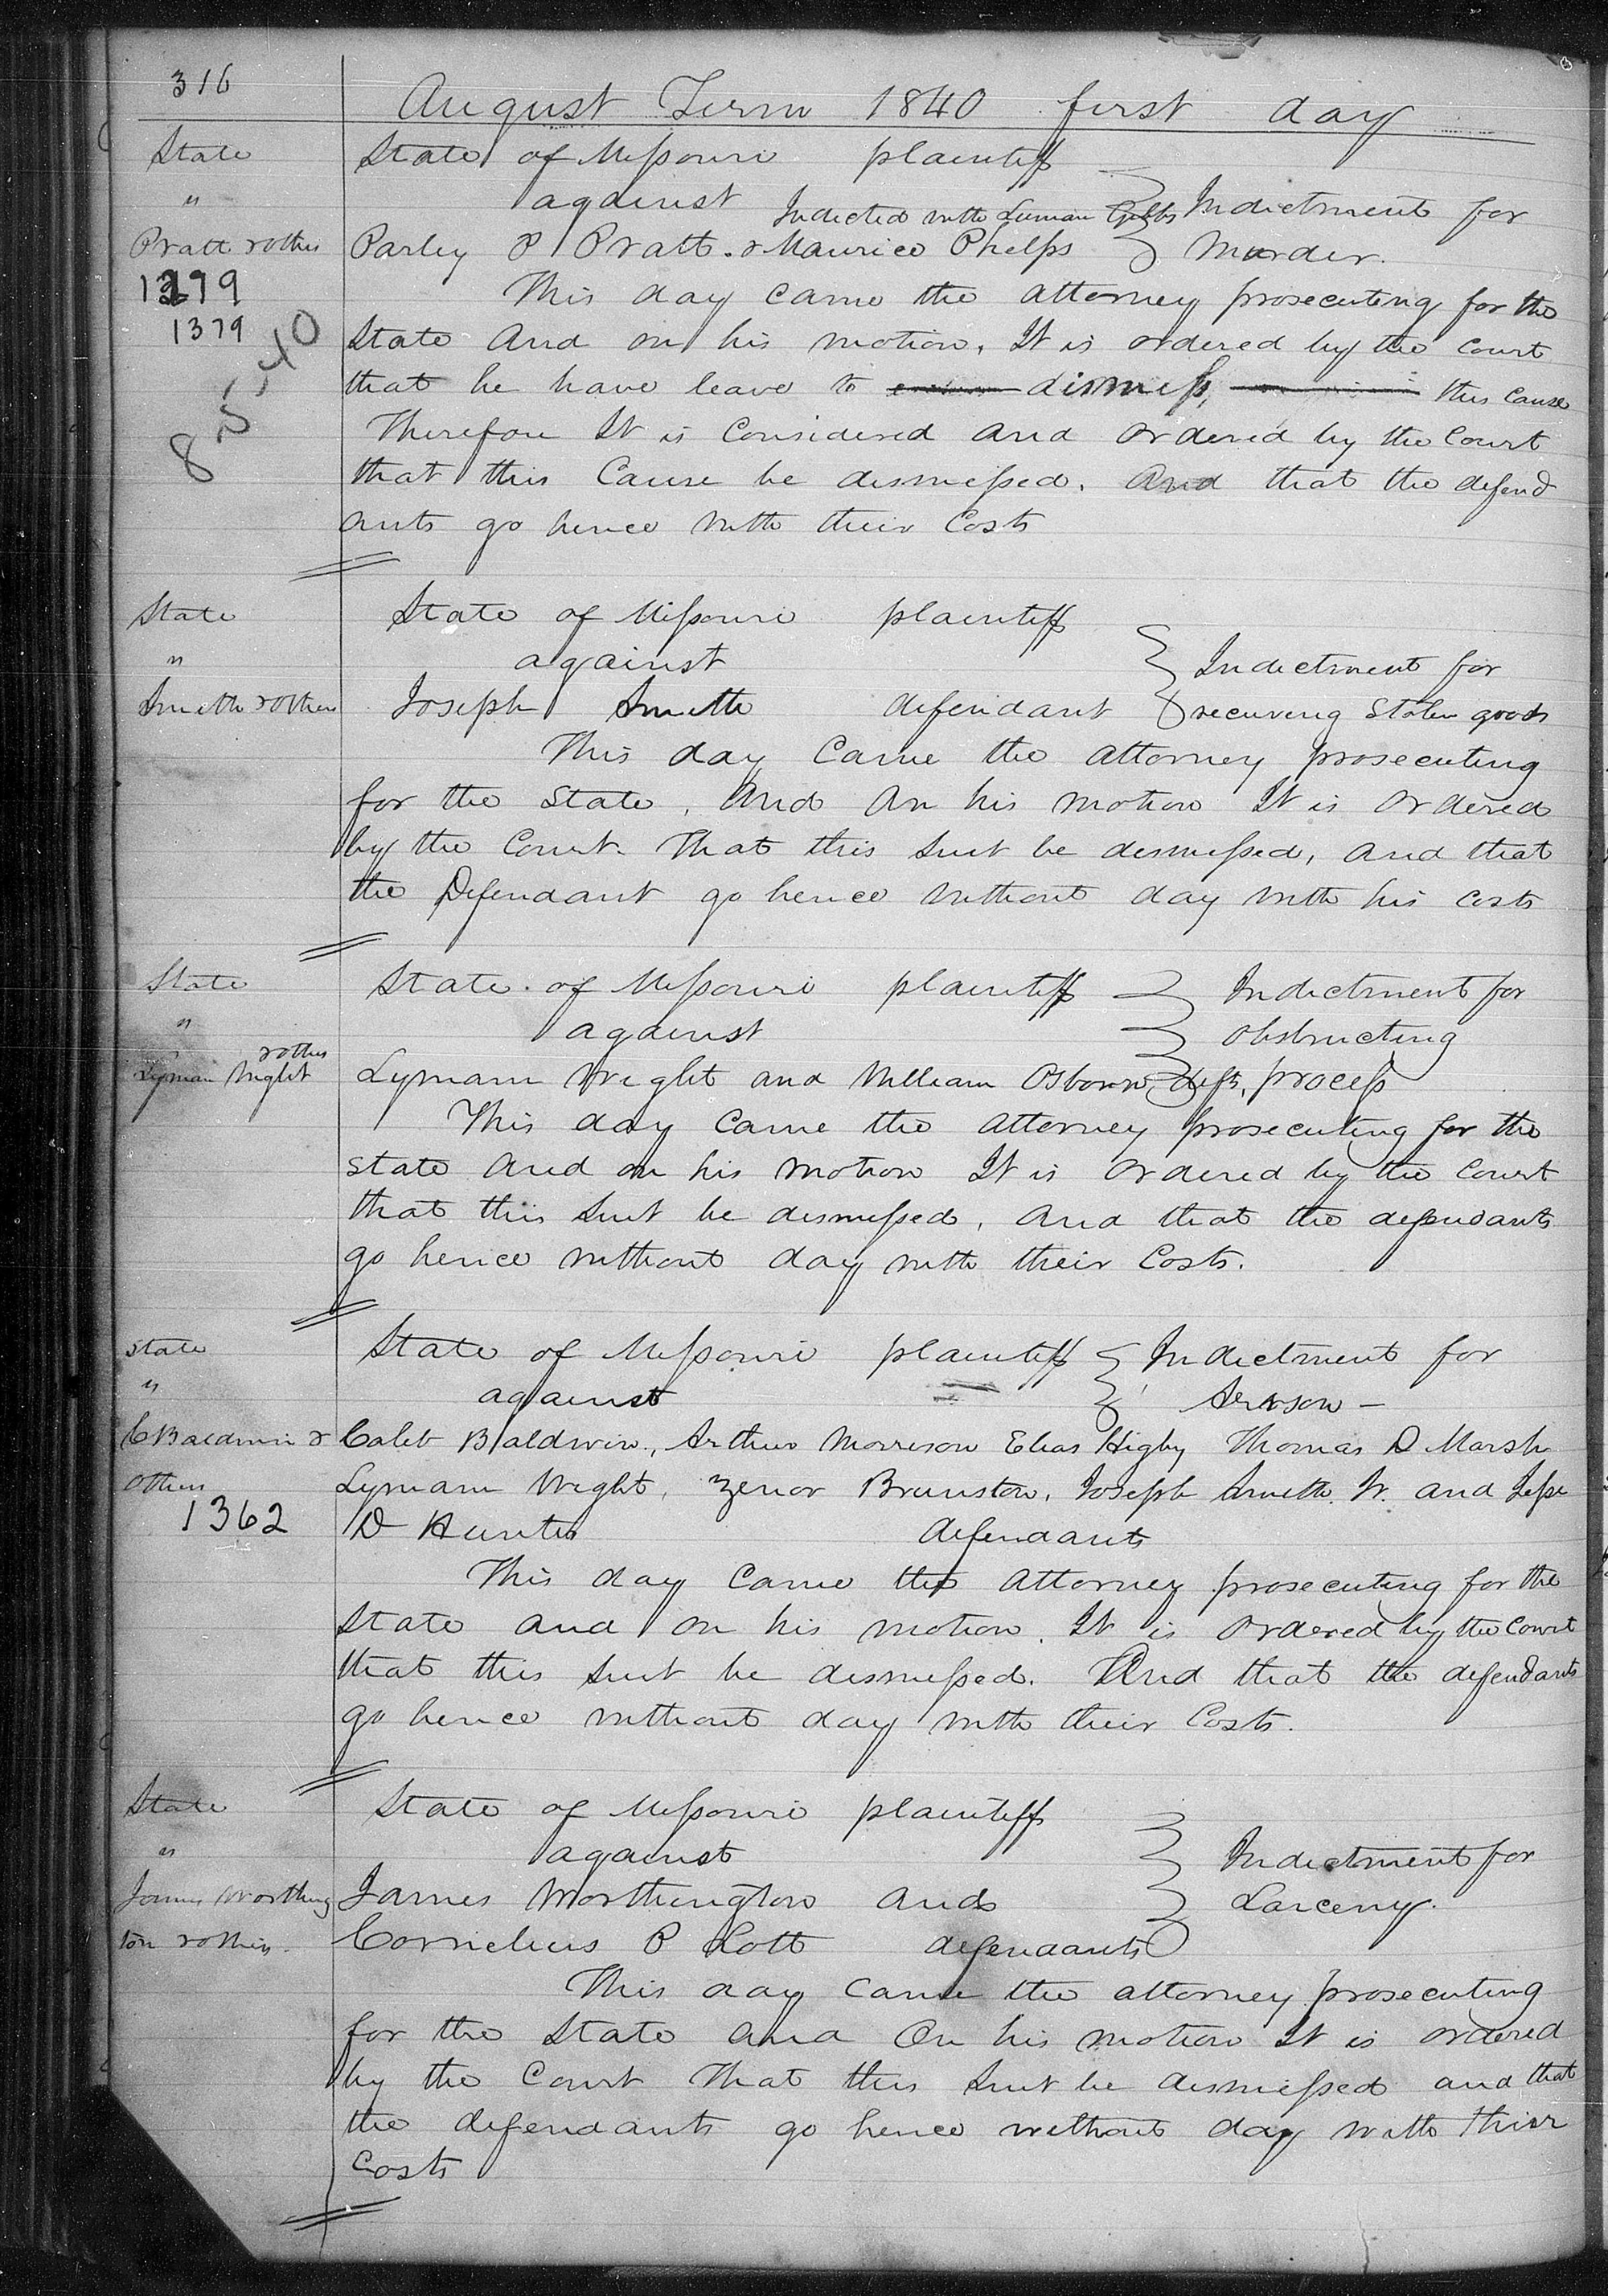 316
August Term 1840 first day
State State of Missouri plaintiff
" against Indicted with Luman Gibbs Indictment for
Pratt & others Parley P Pratt. & Maurice Phelps Murder.
1379 This day came the attorney prosecuting for the
1379 State And on his motion, It is ordered by the court
that he have leave to dismiss, this cause
Therefore It is Considered and ordered by the Court
that this Cause be dismissed. And that the defend
ants go hence with their Costs
8 5 40
State State of Missouri plaintiff
" against Indictment for
Smith & others Joseph Smith defendant receiving stolen goods
This day Came the attorney prosecuting
for the State, And on his motion It is ordered
by the Court. That this Suit be dismissed, and that
the Defendant go hence without day with his costs
State State of Missouri plaintiff Indictment for
" against obstructing
Lyman Wright & others Lymam Wright and William Osborn, defts, process
This day Came the attorney prosecuting for the
state and on his motion It is ordered by the Court
that this Suit be dismissed, and that the defendants
go hence without day with their Costs.
State State of Missouri plaintiff Indictment for
" against Arrson –
C Baldwin & Caleb Baldwin, Arthur Morrison Elias Higby Thomas D Marsh
Others Lymam Wright, Zenor Brunston, Joseph Smith Jr. and Jesse
1362 D Hunter defendants
This day Came the Attorney prosecuting for the
State and on his motion. It is ordered by the Court
that this Suit be dismissed. And that the defendants
go hence without day with their Costs.
State State of Missouri plaintiff
" against Indictment for
James Worthing James Worthington and Larceny.
ton & others. Cornelius P Lott defendants
This day came the attorney prosecuting
for the State and On his motion It is ordered
by the Court That this Suit be dismissed and that
the defendants go hence without day with thier
Costs